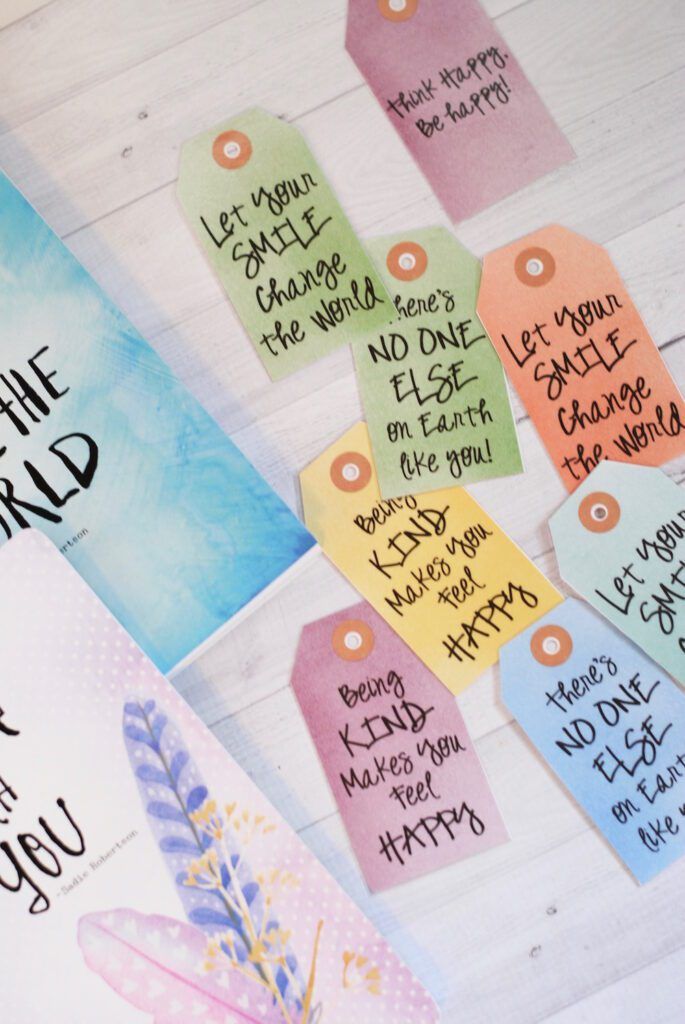 think Happy.
Be happy!
Let your
SMILE
Change
the World
there's
NO ONE
ELSE
on Earth
like you!
Let your
SMILE
Change
the World
Being
KIND
Makes you
Feel
HAPPY
Let your
Being
KIND
Makes you
Feel
HAPPY
there's
NO ONE
ELSE
on Earth
like
THE
YOU
-Sadie Robertson